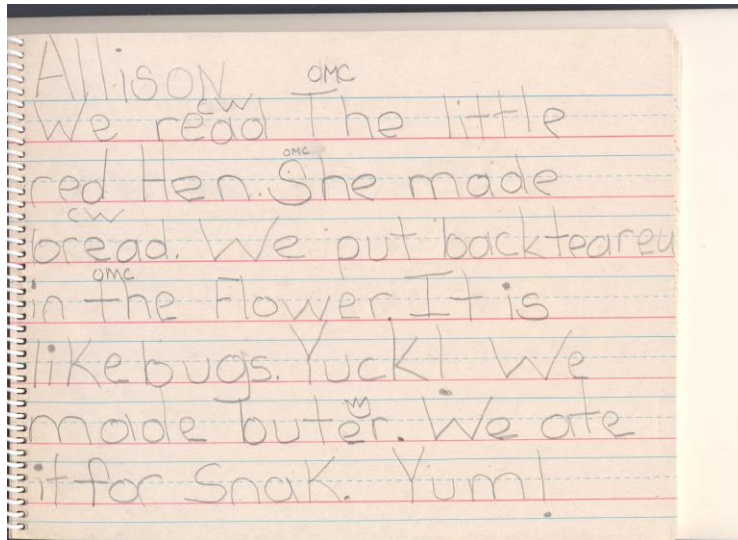 Allison OMC
CW
We read The little
OMC
red Hen. She made
CW
bread. We put backteareu
OMC
in the Flower. It is
like bugs. Yuck! We
made buter. We ate
it for Snak. Yum!